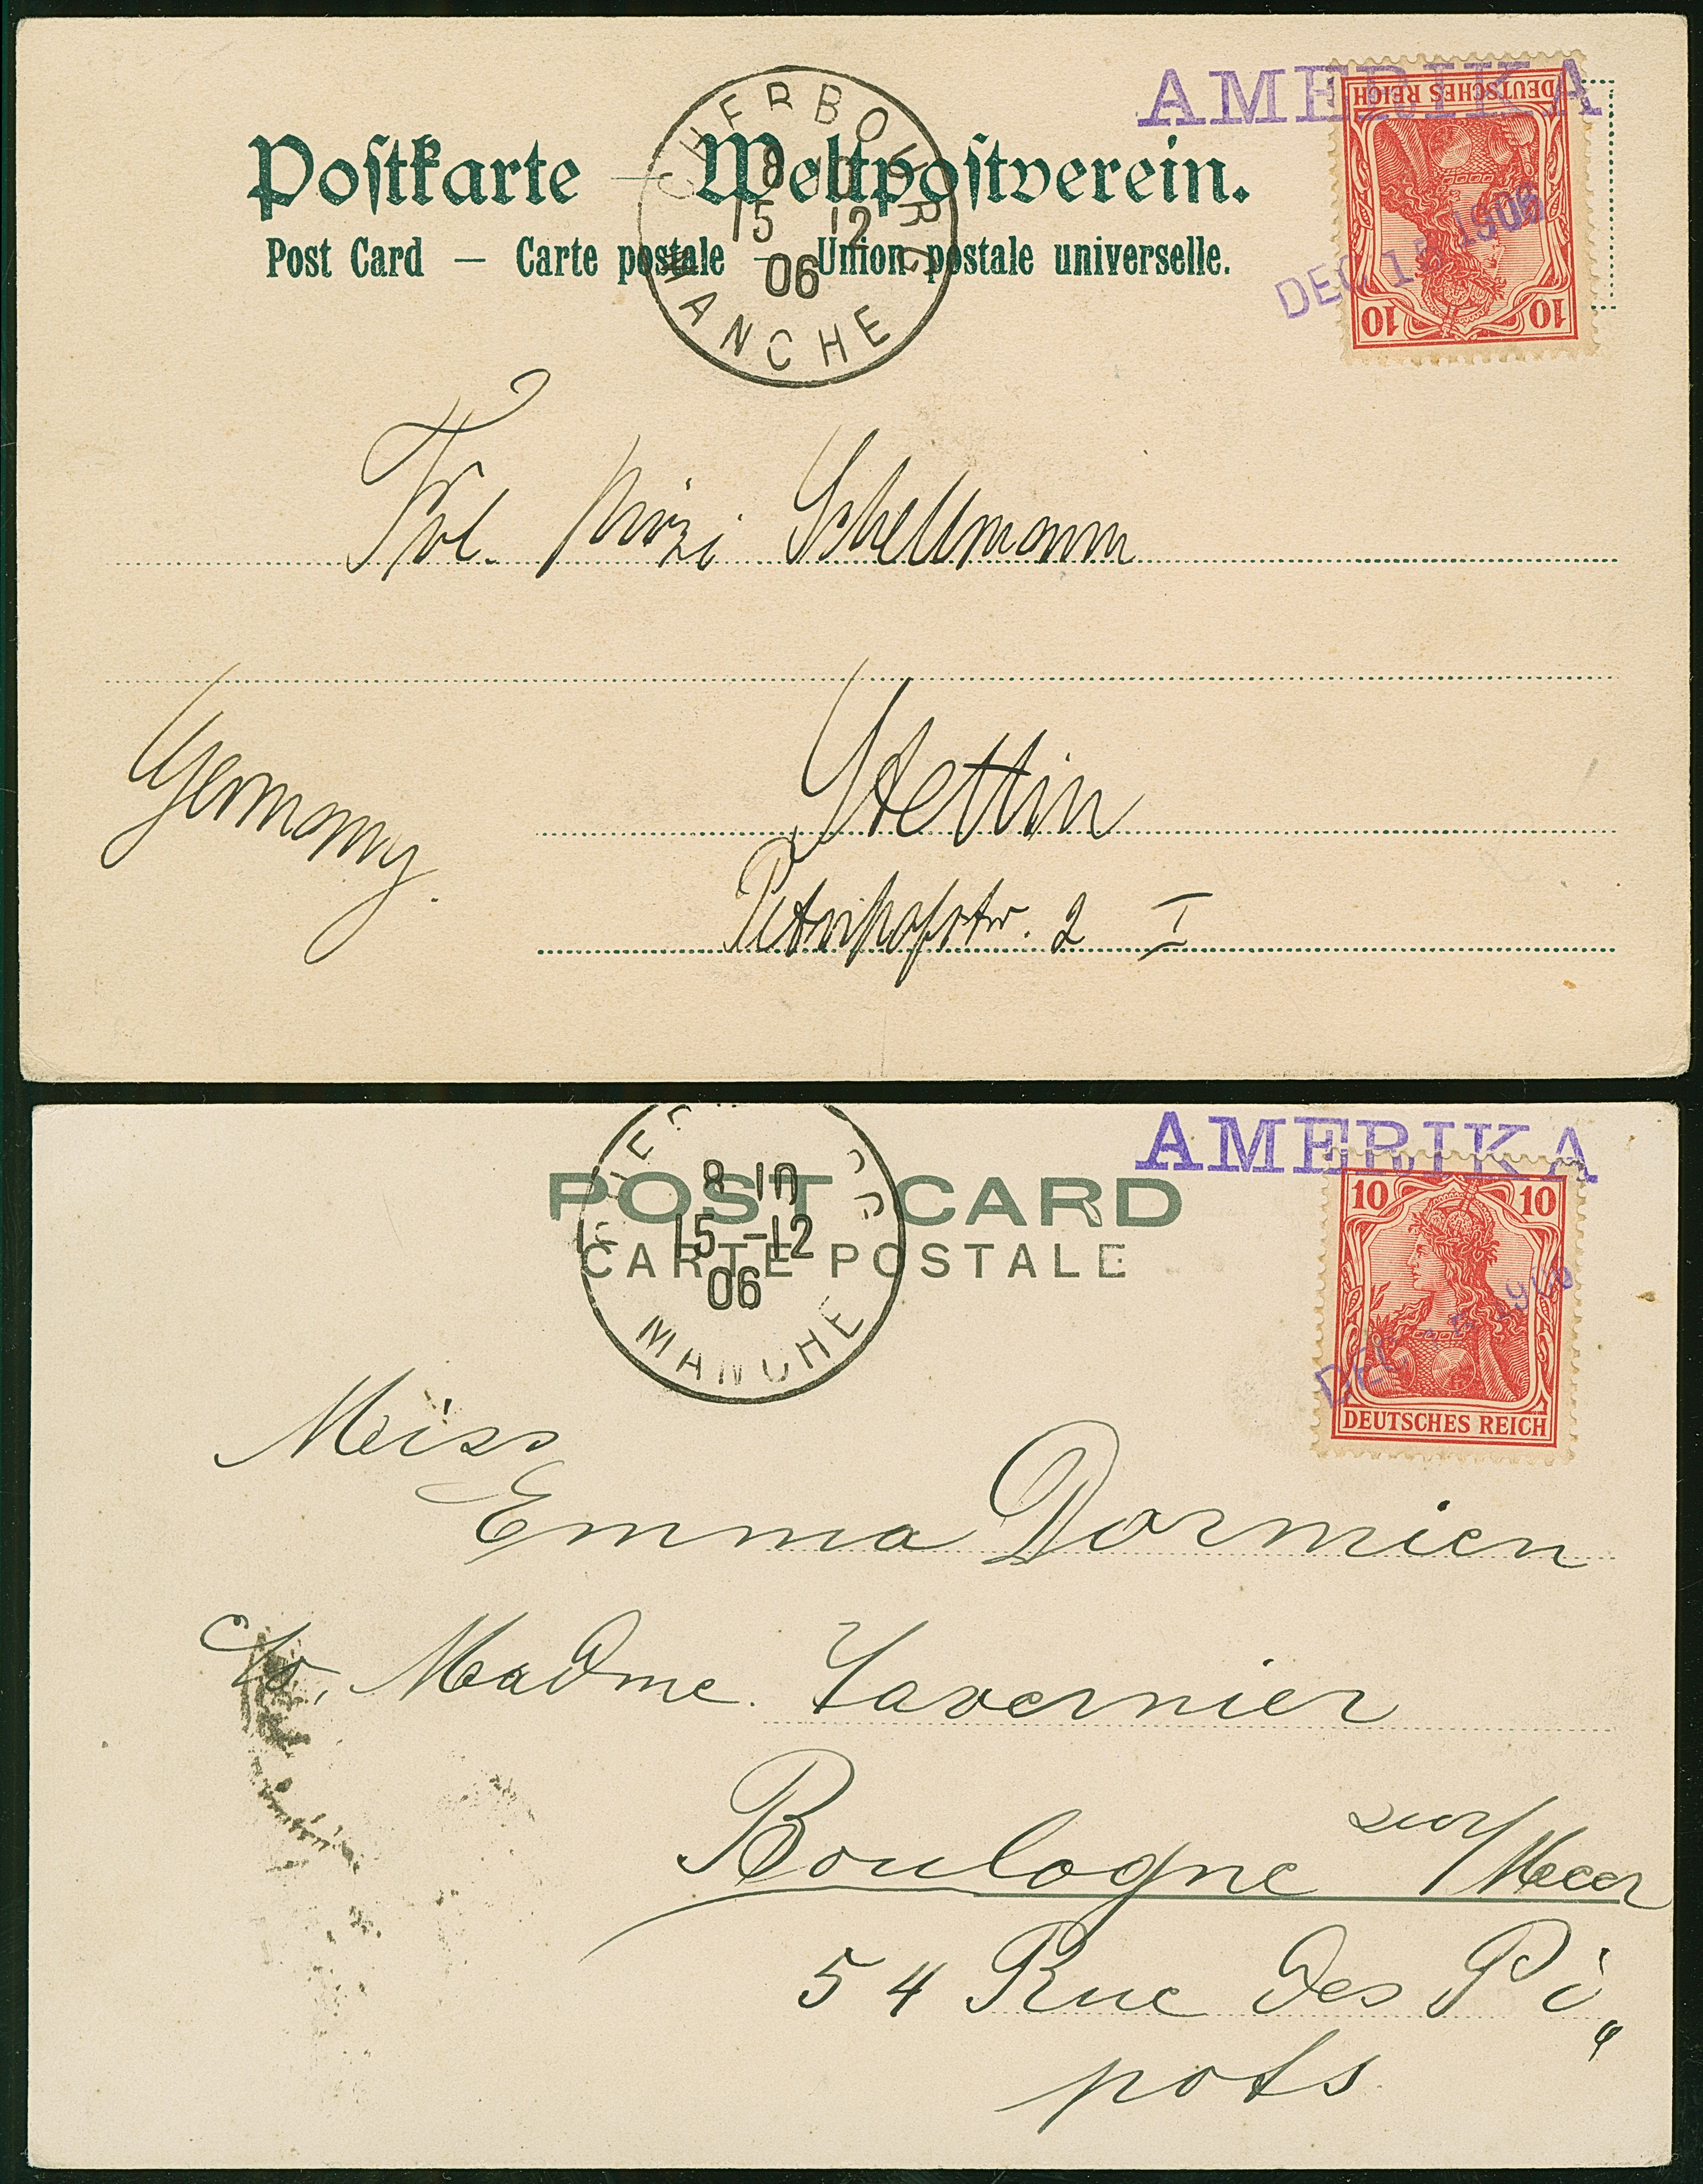 AMERIKA
DEUTSCHES REICH
10 10
DEC 15 1906
CHERBOURG
8 10
15 12
06
MANCHE
Poſtkarte — Weltpoſtverein.
Post Card — Carte postale — Union postale universelle.
Frl. Mizi Schellmann
Stettin
Germany.
2 I
AMERIKA
10 10
DEUTSCHES REICH
DEC
8 10
15 -12
06
MANCHE
POST CARD
CARTE POSTALE
Miss
Emma Dormien
c/o. Madme. Tavernier
Boulogne sur/Meer
54 Rue des Pi„
pots